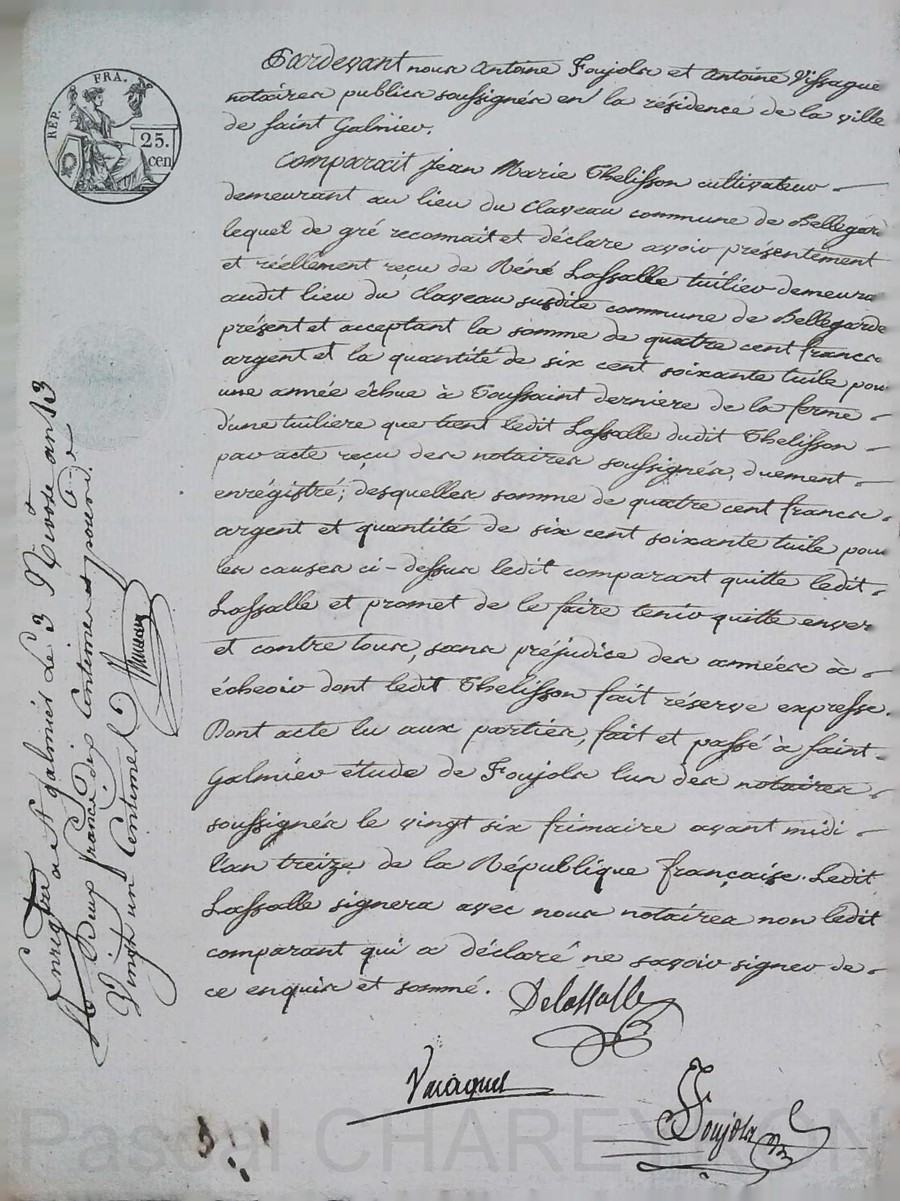 REP. FRA.
25.
cen
Pardevant nous Antoine Foujols et Antoine Vissague
notaires publics soussignés en la résidence de la ville
de Saint Galmier.
Comparait Jean Marie Thelisson cultivateur
demeurant au lieu du Claveau commune de Bellegard
lequel de gré reconnait et déclare avoir présentement
et réellement reçu de Réné Lassalle tuilier demeura
audit lieu du Claveau susdite commune de Bellegarde
présent et acceptant la somme de quatre cent francs
argent et la quantité de six cent soixante tuile pour
une année échue à Toussaint derniere de la ferme
d'une tuiliere que tient ledit Lassalle dudit Thelisson
par acte reçu des notaires soussignés, duement
enrégistré; desquelles somme de quatre cent francs
argent et quantité de six cent soixante tuile pour
les causes ci-dessus ledit comparant quitte ledit
Lassalle et promet de le faire tenir quitte enver
et contre tous, sans préjudice des années à
écheoir dont ledit Thelisson fait réserve expresse.
Dont acte lu aux parties, fait et passé à saint
Galmier étude de Foujols l'un des notaires
soussignés le vingt six frimaire avant midi
l'an treize de la République française. Ledit
Lassalle signera avec nous notaires non ledit
comparant qui a déclaré ne savoir signer de
ce enquis et sommé. Delassalle
Foujols
Enregistré a St Galmier le 3 Nivose an 13
Deux francs dix centimes
Vingt un Centimes
Pascal CHAREYRON